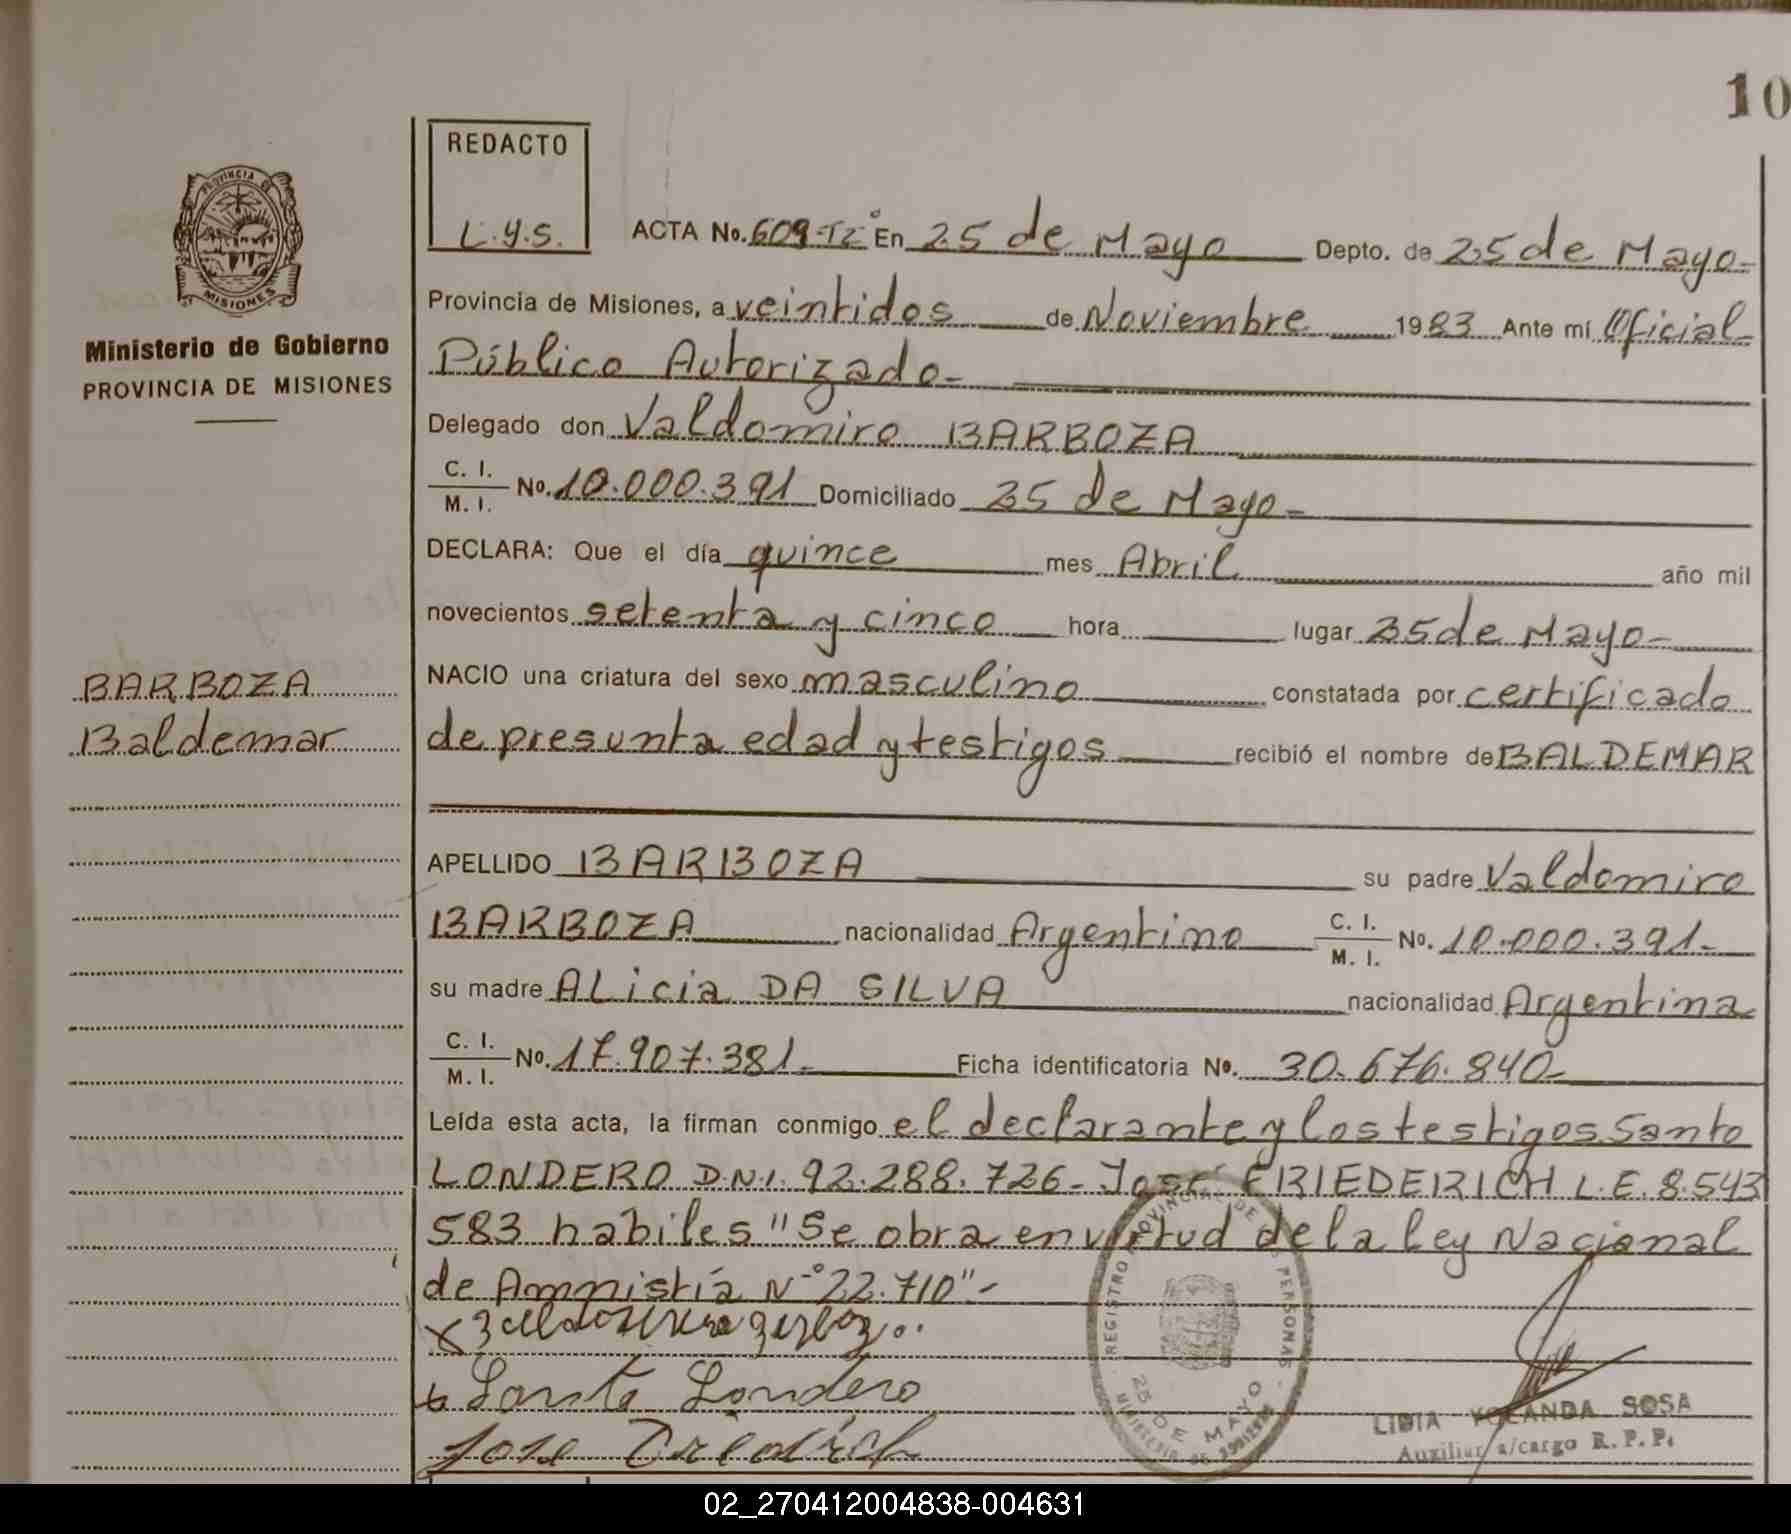 10
REDACTO
L.Y.S.
ACTA No. 609-Tº2 En 25 de Mayo Depto. de 25 de Mayo-
Provincia de Misiones, a veintidos de Noviembre 1983 Ante mí Oficial
Público Autorizado-
Delegado don Valdomiro BARBOZA
C. I. / M. I. No. 10.000.391 Domiciliado 25 de Mayo-
DECLARA: Que el día quince mes Abril año mil
novecientos setenta y cinco hora lugar 25 de Mayo-
NACIO una criatura del sexo masculino constatada por certificado
de presunta edad y testigos recibió el nombre de BALDEMAR
APELLIDO BARBOZA su padre Valdomiro
BARBOZA nacionalidad Argentino C. I. / M. I. No. 10.000.391-
su madre ALicia DA SILVA nacionalidad Argentina
C. I. / M. I. No. 17.907.381- Ficha identificatoria No. 30.676.840-
Leída esta acta, la firman conmigo el declarante y los testigos Santo
LONDERO D.N.I. 92.288.726- José FRIEDERICH L.E. 8.543
583 habiles "Se obra en virtud de la ley Nacional
de Amnistía Nº 22.710"-
Santo Londero
Jose
PROVINCIA DE
MISIONES
Ministerio de Gobierno
PROVINCIA DE MISIONES
BARBOZA
Baldemar
REGISTRO PROVINCIAL DE PERSONAS
25 DE MAYO
LIDIA YOLANDA SOSA
Auxiliar a/cargo R. P. P.
02_270412004838-004631